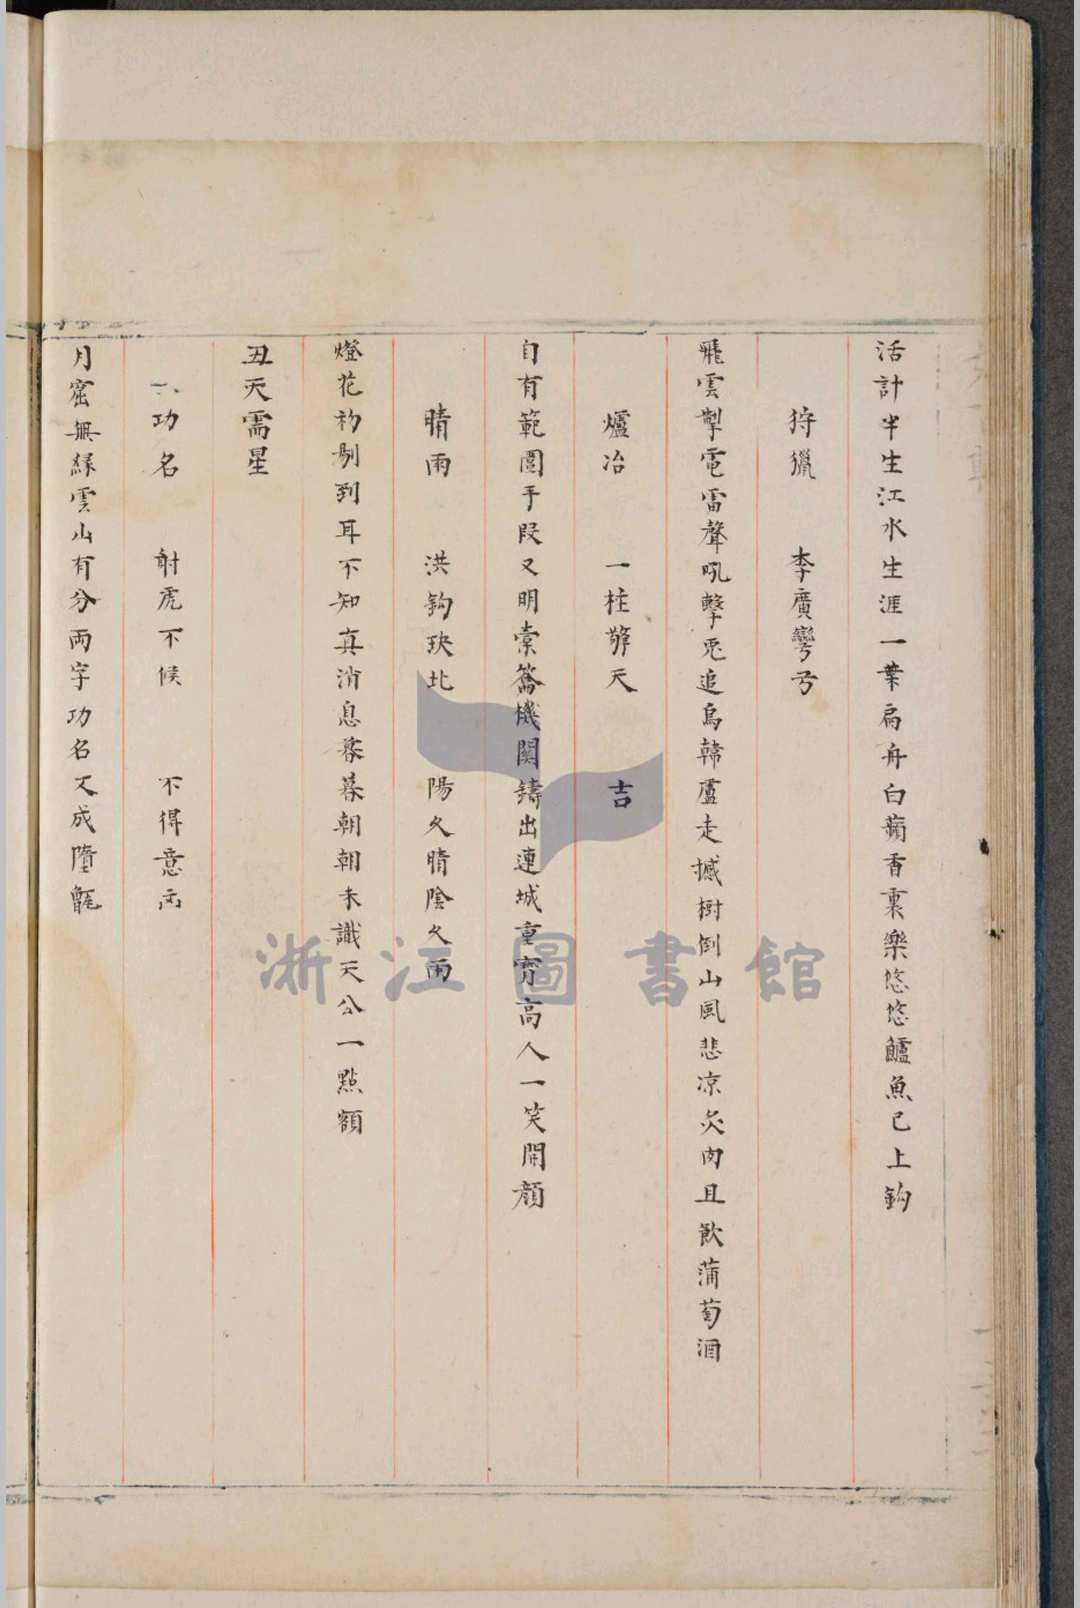 活計半生江水生涯一葉扁舟白蘋香裏樂悠悠鱸魚已上鈎
狩獵 李廣彎弓
飛雲掣電雷聲吼擊兎追烏韓盧走撼樹倒山風悲凉炙肉且飲蒲萄酒
爐冶 一柱擎天 吉
自有範圍手段又明橐籥機關鑄出連城重寶高人一笑開顔
晴雨 洪鈞玦北 陽久晴陰久雨
燈花礿剔到耳不知真消息暮暮朝朝未識天公一點額
丑天需星
功名 射虎不候 不得意
月窟無緣雲山有分兩字功名又成墮甑
浙江圖書館